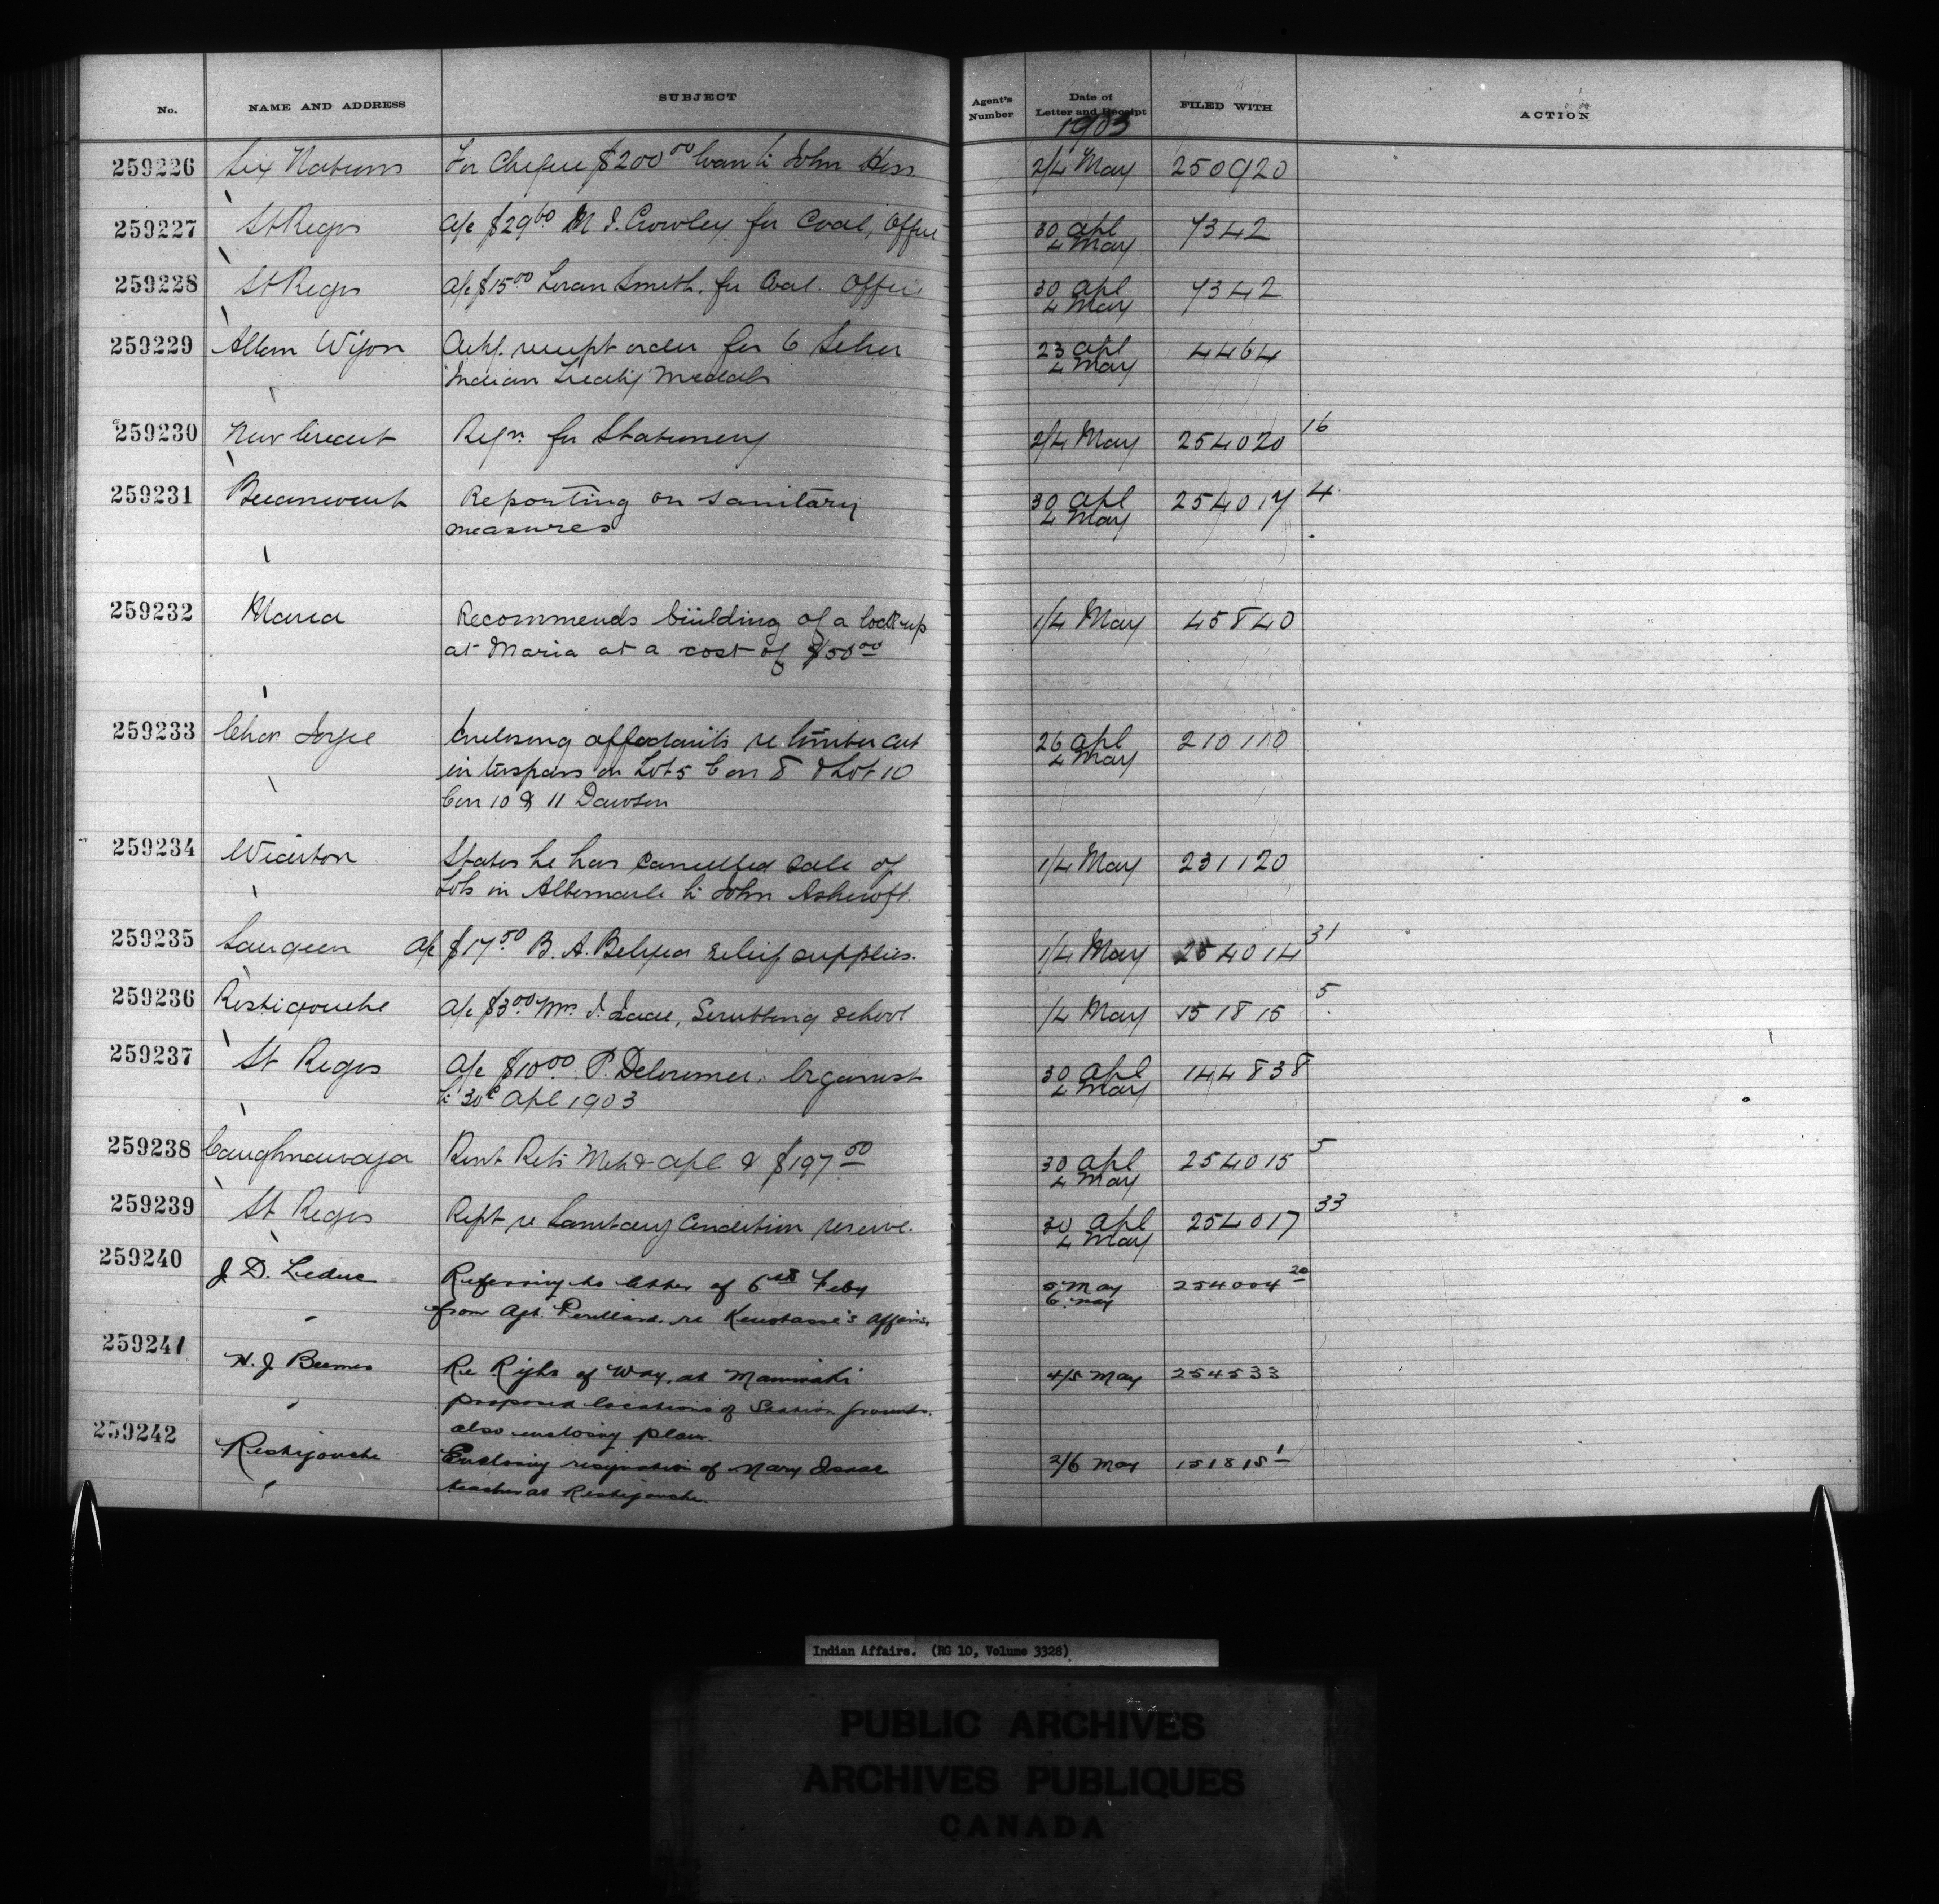 No. NAME AND ADDRESS SUBJECT Agent's Number Date of Letter and Receipt FILED WITH ACTION
1903
259226 Six Nations For Cheque $200.00 loan to John Hess 2/4 May 250920
259227 St Regis a/c $29.60 M J. Crowley for Coal, Office 30 Apl 4 May 7342
259228 St Regis a/c $15.00 Loran Smith. for Coal. Office 30 Apl 4 May 7342
259229 Allan Ackg. receipt order for 6 Silver 23 Apl 4 May 4464
Indian Treaty Medals
259230 New Credit Reqn. for Stationery 2/4 May 254020 16
259231 Becancourt Reporting on sanitary 30 Apl 4 May 254017 4
measures
259232 Maria Recommends building of a lock-up 1/4 May 45840
at Maria at a cost of $50.00
259233 Chas Enclosing affadavits re timber cut 26 Apl 4 May 210110
in trespass on Lot 5 Con 8 & Lot 10
Con 10 & 11 Dawson
259234 Wiarton States he has cancelled sale of 1/4 May 231120
Lots in Albemarle to John Ashcroft.
259235 Saugeen a/c $17.50 B. A. Belyea relief supplies. 1/4 May 254014 31
259236 Restigouche a/c $3.00 Mrs. I. Isaac, Scrubbing school 1/4 May 151815 5
259237 St Regis a/c $10.00 P. Delormier, Organist 30 Apl 4 May 144838
to 30 Apl 1903
259238 Caughnawaga Rent Rets Mch & Apl & $197.50 30 Apl 4 May 254015 5
259239 St Regis Rept re Sanitary Condition reserve. 30 Apl 4 May 254017 33
259240 J. D. Leduc Referring to letter of 6th Feby 5 May 6 May 254004 20
from Agt. re affairs,
259241 H. J. Beemer Re Right of Way, at Maniwaki 4/5 May 254533
proposed locations of Station grounds.
also enclosing plan.
259242 Restigouche Enclosing resignation of Mary Isaac 2/6 May 151815 1
teacher at Restigouche.
Indian Affairs. (RG 10, Volume 3328)
PUBLIC ARCHIVES
ARCHIVES PUBLIQUES
CANADA